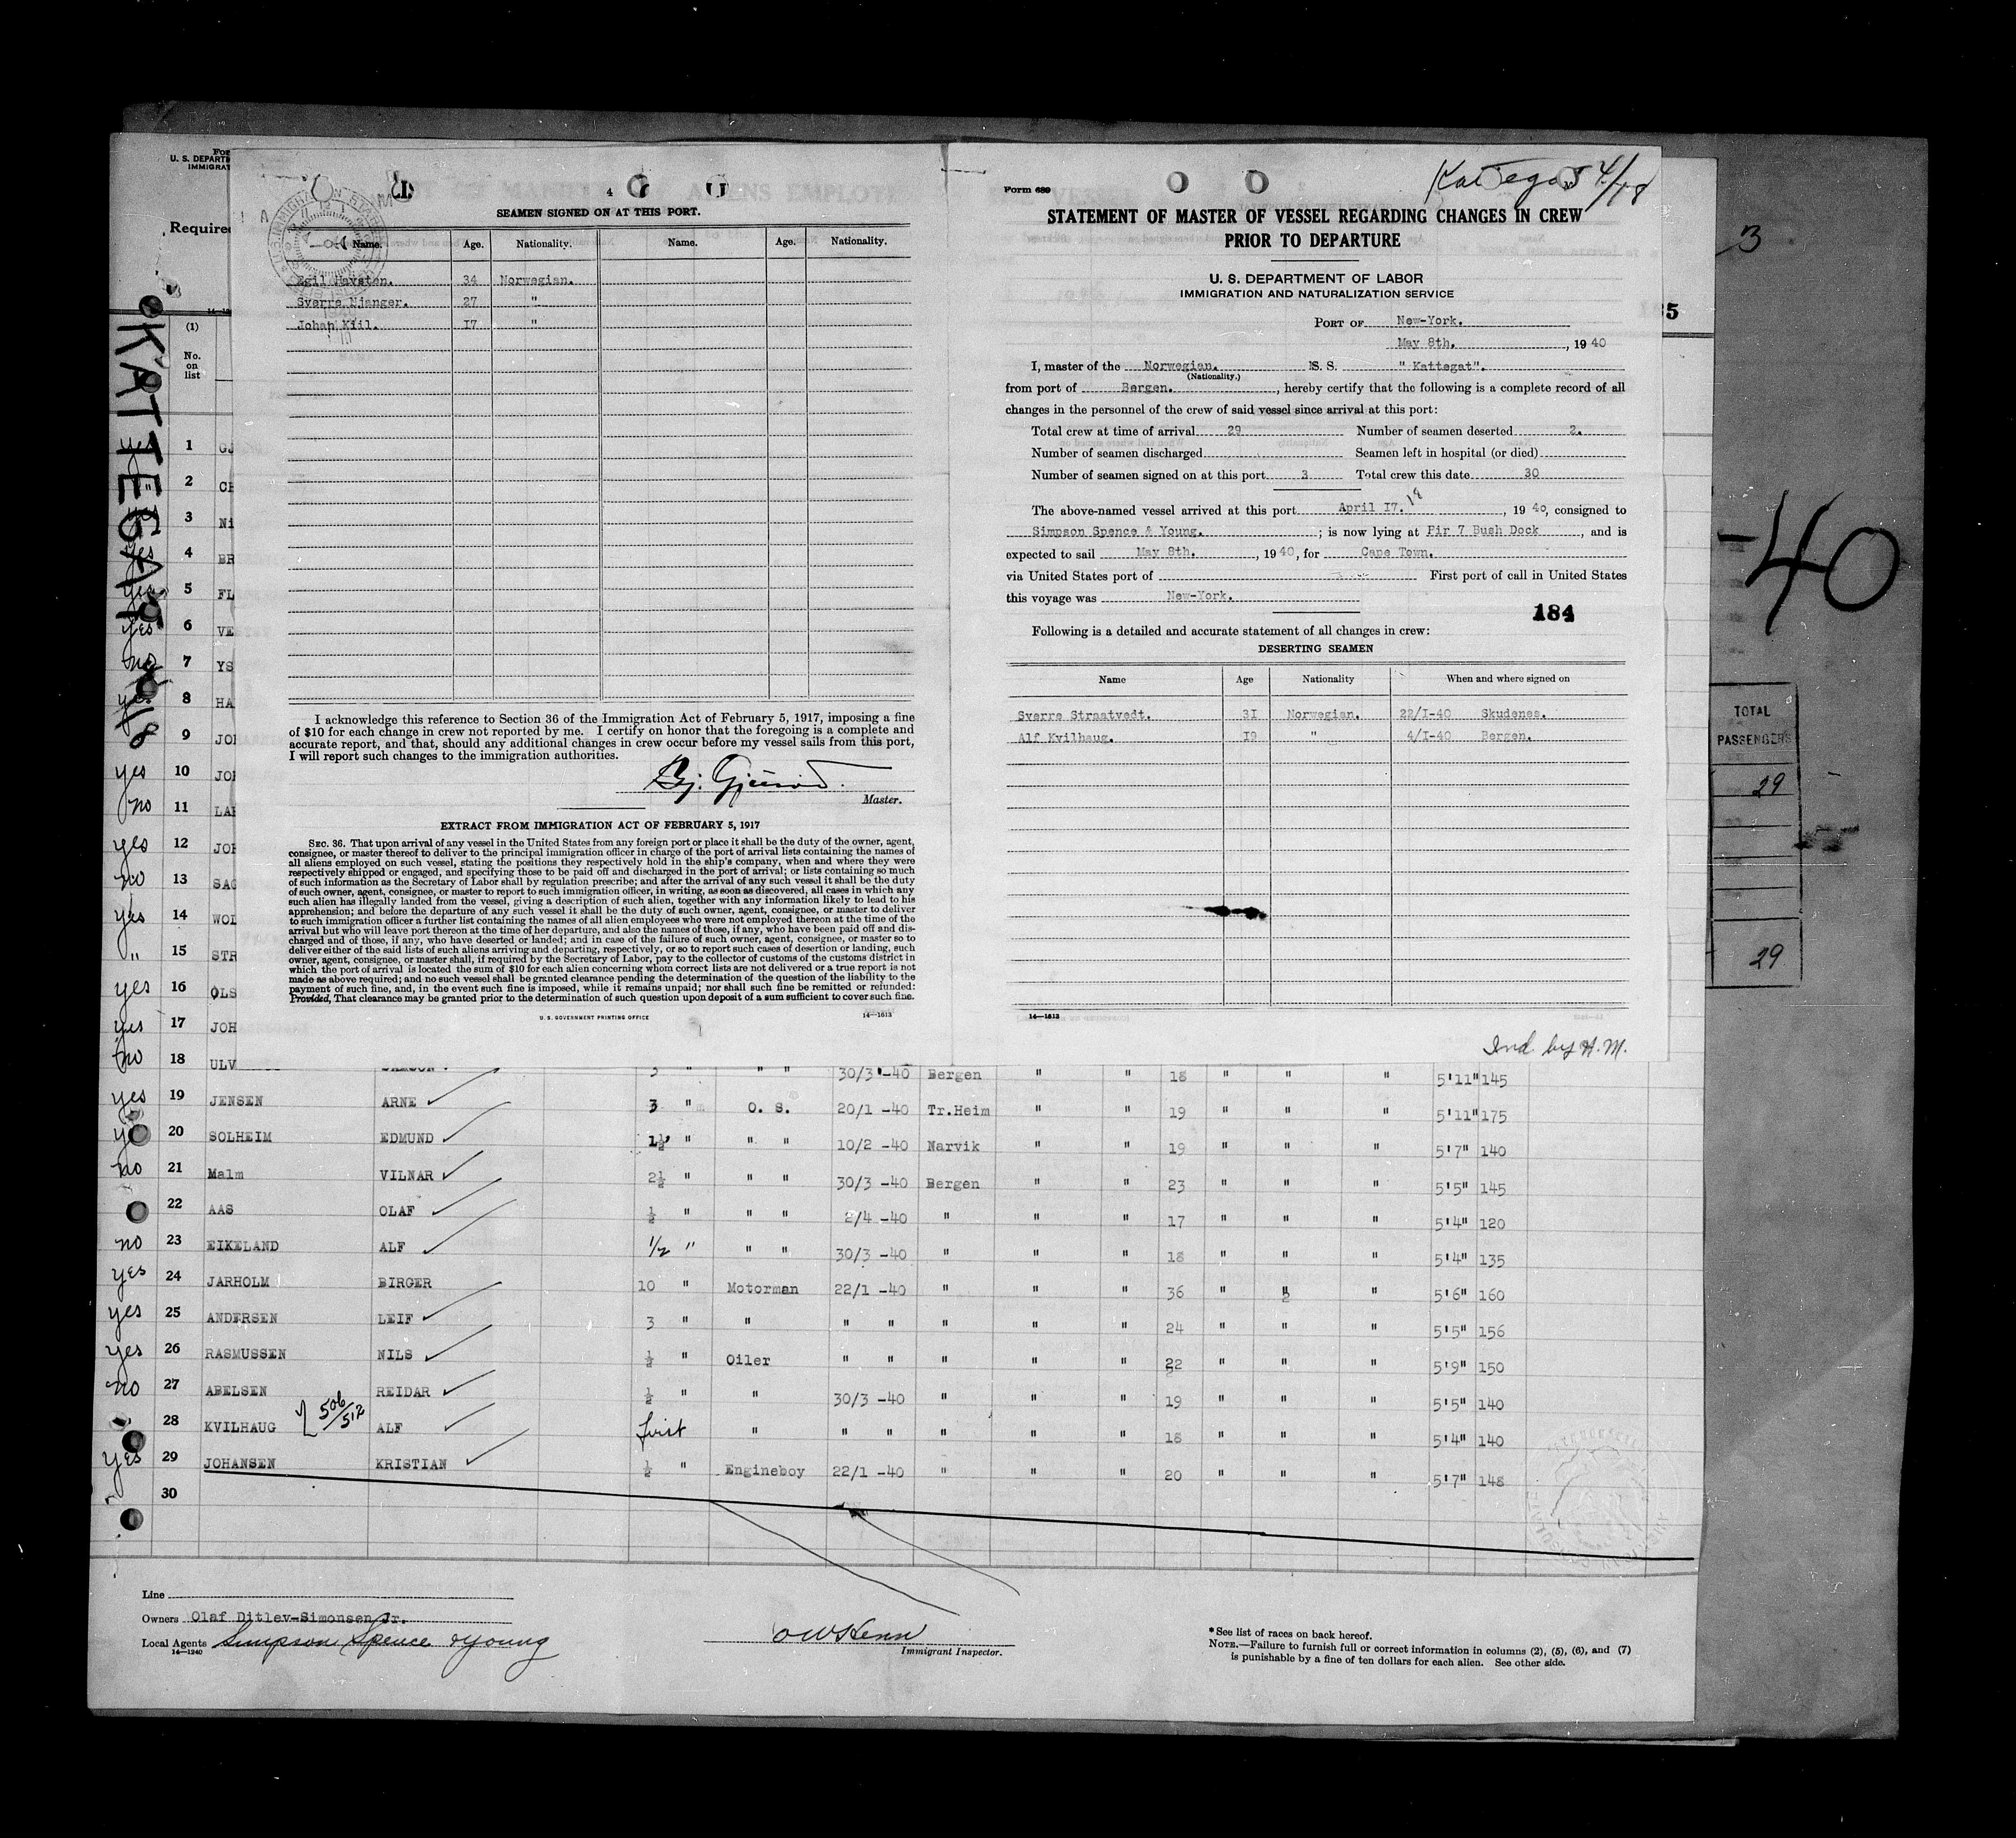 SEAMEN SIGNED ON AT THIS PORT.
Name. Age. Nationality. Name. Age. Nationality.
Egil Havsten. 34 Norwegian.
Sverre Njanger. 27 "
Johan Kiil. 17 "
I acknowledge this reference to Section 36 of the Immigration Act of February 5, 1917, imposing a fine
of $10 for each change in crew not reported by me. I certify on honor that the foregoing is a complete and
accurate report, and that, should any additional changes in crew occur before my vessel sails from this port,
I will report such changes to the immigration authorities.
Master.
EXTRACT FROM IMMIGRATION ACT OF FEBRUARY 5, 1917
SEC. 36. That upon arrival of any vessel in the United States from any foreign port or place it shall be the duty of the owner, agent,
consignee, or master thereof to deliver to the principal immigration officer in charge of the port of arrival lists containing the names of
all aliens employed on such vessel, stating the positions they respectively hold in the ship's company, when and where they were
respectively shipped or engaged, and specifying those to be paid off and discharged in the port of arrival; or lists containing so much
of such information as the Secretary of Labor shall by regulation prescribe; and after the arrival of any such vessel it shall be the duty
of such owner, agent, consignee, or master to report to such immigration officer, in writing, as soon as discovered, all cases in which any
such alien has illegally landed from the vessel, giving a description of such alien, together with any information likely to lead to his
apprehension; and before the departure of any such vessel it shall be the duty of such owner, agent, consignee, or master to deliver
to such immigration officer a further list containing the names of all alien employees who were not employed thereon at the time of the
arrival but who will leave port thereon at the time of her departure, and also the names of those, if any, who have been paid off and dis-
charged and of those, if any, who have deserted or landed; and in case of the failure of such owner, agent, consignee, or master so to
deliver either of the said lists of such aliens arriving and departing, respectively, or so to report such cases of desertion or landing, such
owner, agent, consignee, or master shall, if required by the Secretary of Labor, pay to the collector of customs of the customs district in
which the port of arrival is located the sum of $10 for each alien concerning whom correct lists are not delivered or a true report is not
made as above required; and no such vessel shall be granted clearance pending the determination of the question of the liability to the
payment of such fine, and, in the event such fine is imposed, while it remains unpaid; nor shall such fine be remitted or refunded:
Provided, That clearance may be granted prior to the determination of such question upon deposit of a sum sufficient to cover such fine.
U. S. GOVERNMENT PRINTING OFFICE 14—1613
Kattegat 4/18
Form 689
STATEMENT OF MASTER OF VESSEL REGARDING CHANGES IN CREW
PRIOR TO DEPARTURE
U. S. DEPARTMENT OF LABOR
IMMIGRATION AND NATURALIZATION SERVICE
PORT OF New-York.
May 8th. , 1940
I, master of the Norwegian. S. S. " Kattegat".
(Nationality.)
from port of Bergen. , hereby certify that the following is a complete record of all
changes in the personnel of the crew of said vessel since arrival at this port:
Total crew at time of arrival 29 Number of seamen deserted 2.
Number of seamen discharged Seamen left in hospital (or died)
Number of seamen signed on at this port 3 Total crew this date 30
The above-named vessel arrived at this port April 17. 18 , 1940, consigned to
Simpson Spence & Young. ; is now lying at Pir 7 Bush Dock , and is
expected to sail May 8th. , 1940, for Cape Town.
via United States port of First port of call in United States
this voyage was New-York.
184
Following is a detailed and accurate statement of all changes in crew:
DESERTING SEAMEN
Name Age Nationality When and where signed on
Sverre Straatvedt. 31 Norwegian. 22/1-40 Skudenes.
Alf Kvilhaug. 19 " 4/1-40 Bergen.
14—1613
Ind. by H. M.
U. S. DEPART
IMMIGRAT
Required
(1)
No.
on
list
KATTEGAT 4/18
yes 1 GJ
" 2 CH
3 NI
yes 4 BR
yes 5 FL
yes 6 VE
no 7 YS
yes 8 HA
9 JOH
yes 10 JOH
no 11 LAR
yes 12 JOH
no 13 SAG
yes 14 WOL
" 15 STR
yes 16 OLS
yes 17 JOH
no 18 ULV 3 " " " 30/3 -40 Bergen " " 18 " " " 5'11" 145
yes 19 JENSEN ARNE 3 " O. S. 20/1 -40 Tr.Heim " " 19 " " " 5'11" 175
yes 20 SOLHEIM EDMUND 1½ " " " 10/2 -40 Narvik " " 19 " " " 5'7" 140
no 21 Malm VILNAR 2½ " " " 30/3 -40 Bergen " " 23 " " " 5'5" 145
22 AAS OLAF ½ " " " 2/4 -40 " " " 17 " " " 5'4" 120
no 23 EIKELAND ALF 1/2 " " " 30/3 -40 " " " 18 " " " 5'4" 135
yes 24 JARHOLM BIRGER 10 " Motorman 22/1 -40 " " " 36 " " " 5'6" 160
yes 25 ANDERSEN LEIF 3 " " " " " " " 24 " " " 5'5" 156
yes 26 RASMUSSEN NILS ½ " Oiler " " " " " 22 " " " 5'9" 150
no 27 ABELSEN REIDAR ½ " " 30/3 -40 " " " 19 " " " 5'5" 140
28 KVILHAUG 506/512 ALF first " " " " " " 18 " " " 5'4" 140
yes 29 JOHANSEN KRISTIAN ½ " Engineboy 22/1 -40 " " " 20 " " " 5'7" 148
30
Line
Owners Olaf Ditlev-Simonsen Jr.
Local Agents Simpson Spence & Young
14—1240
Immigrant Inspector.
*See list of races on back hereof.
NOTE.—Failure to furnish full or correct information in columns (2), (5), (6), and (7)
is punishable by a fine of ten dollars for each alien. See other side.
3
-40
TOTAL
PASSENGERS
29
29